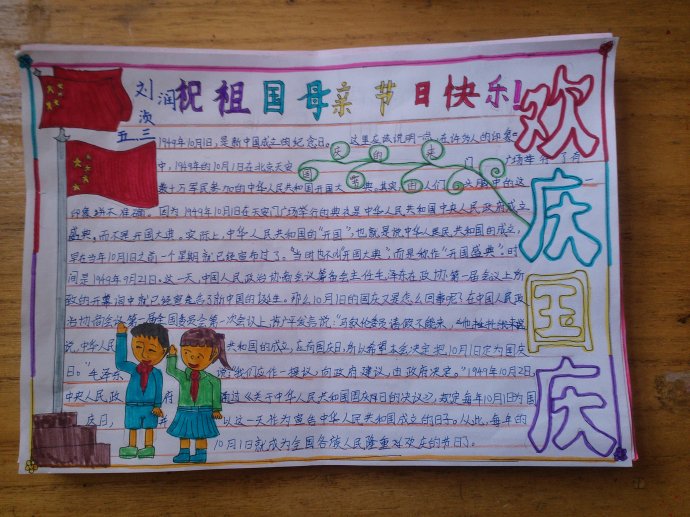 祝祖国母亲节日快乐!
欢庆国庆
刘润
五三
国庆的由来
1949年10月1日,是新中国成立的纪念日。这里应该说明一点,在许多人的印象
中,1949年的10月1日在北京天安门广场举行了有
数十万军民参加的中华人民共和国开国大典。其实,人们头脑中的这一
印象并不准确。因为1949年10月1日在天安门广场举行的典礼是中华人民共和国中央人民政府成立
盛典,而不是开国大典。实际上,中华人民共和国的“开国”,也就是说中华人民共和国的成立,
早在当年10月1日之前一个星期就已经宣布过了。当时也不叫“开国大典”,而是称作“开国盛典”。时
间是1949年9月21日。这一天,中国人民政治协商会议筹备会主任毛泽东在政协第一届会议上所
致的开幕词中就已经宣告了新中国的诞生。那么10月1日的国庆又是怎么回事呢?在中国人民政
治协商会议第一届全国委员会第一次会议上,许广平发言说:“马叙伦委员请假不能来,他托我来
说,中华人民共和国的成立,应有国庆日,所以希望本会决定把10月1日定为国庆
日。”毛泽东说“我们应作一提议,向政府建议,由政府决定。”1949年10月2日,
中央人民政府通过《关于中华人民共和国国庆日的决议》,规定每年10月1日为国
庆日,以这一天作为宣告中华人民共和国成立的日子。从此,每年的
10月1日就成为全国各族人民隆重欢庆的节日了。